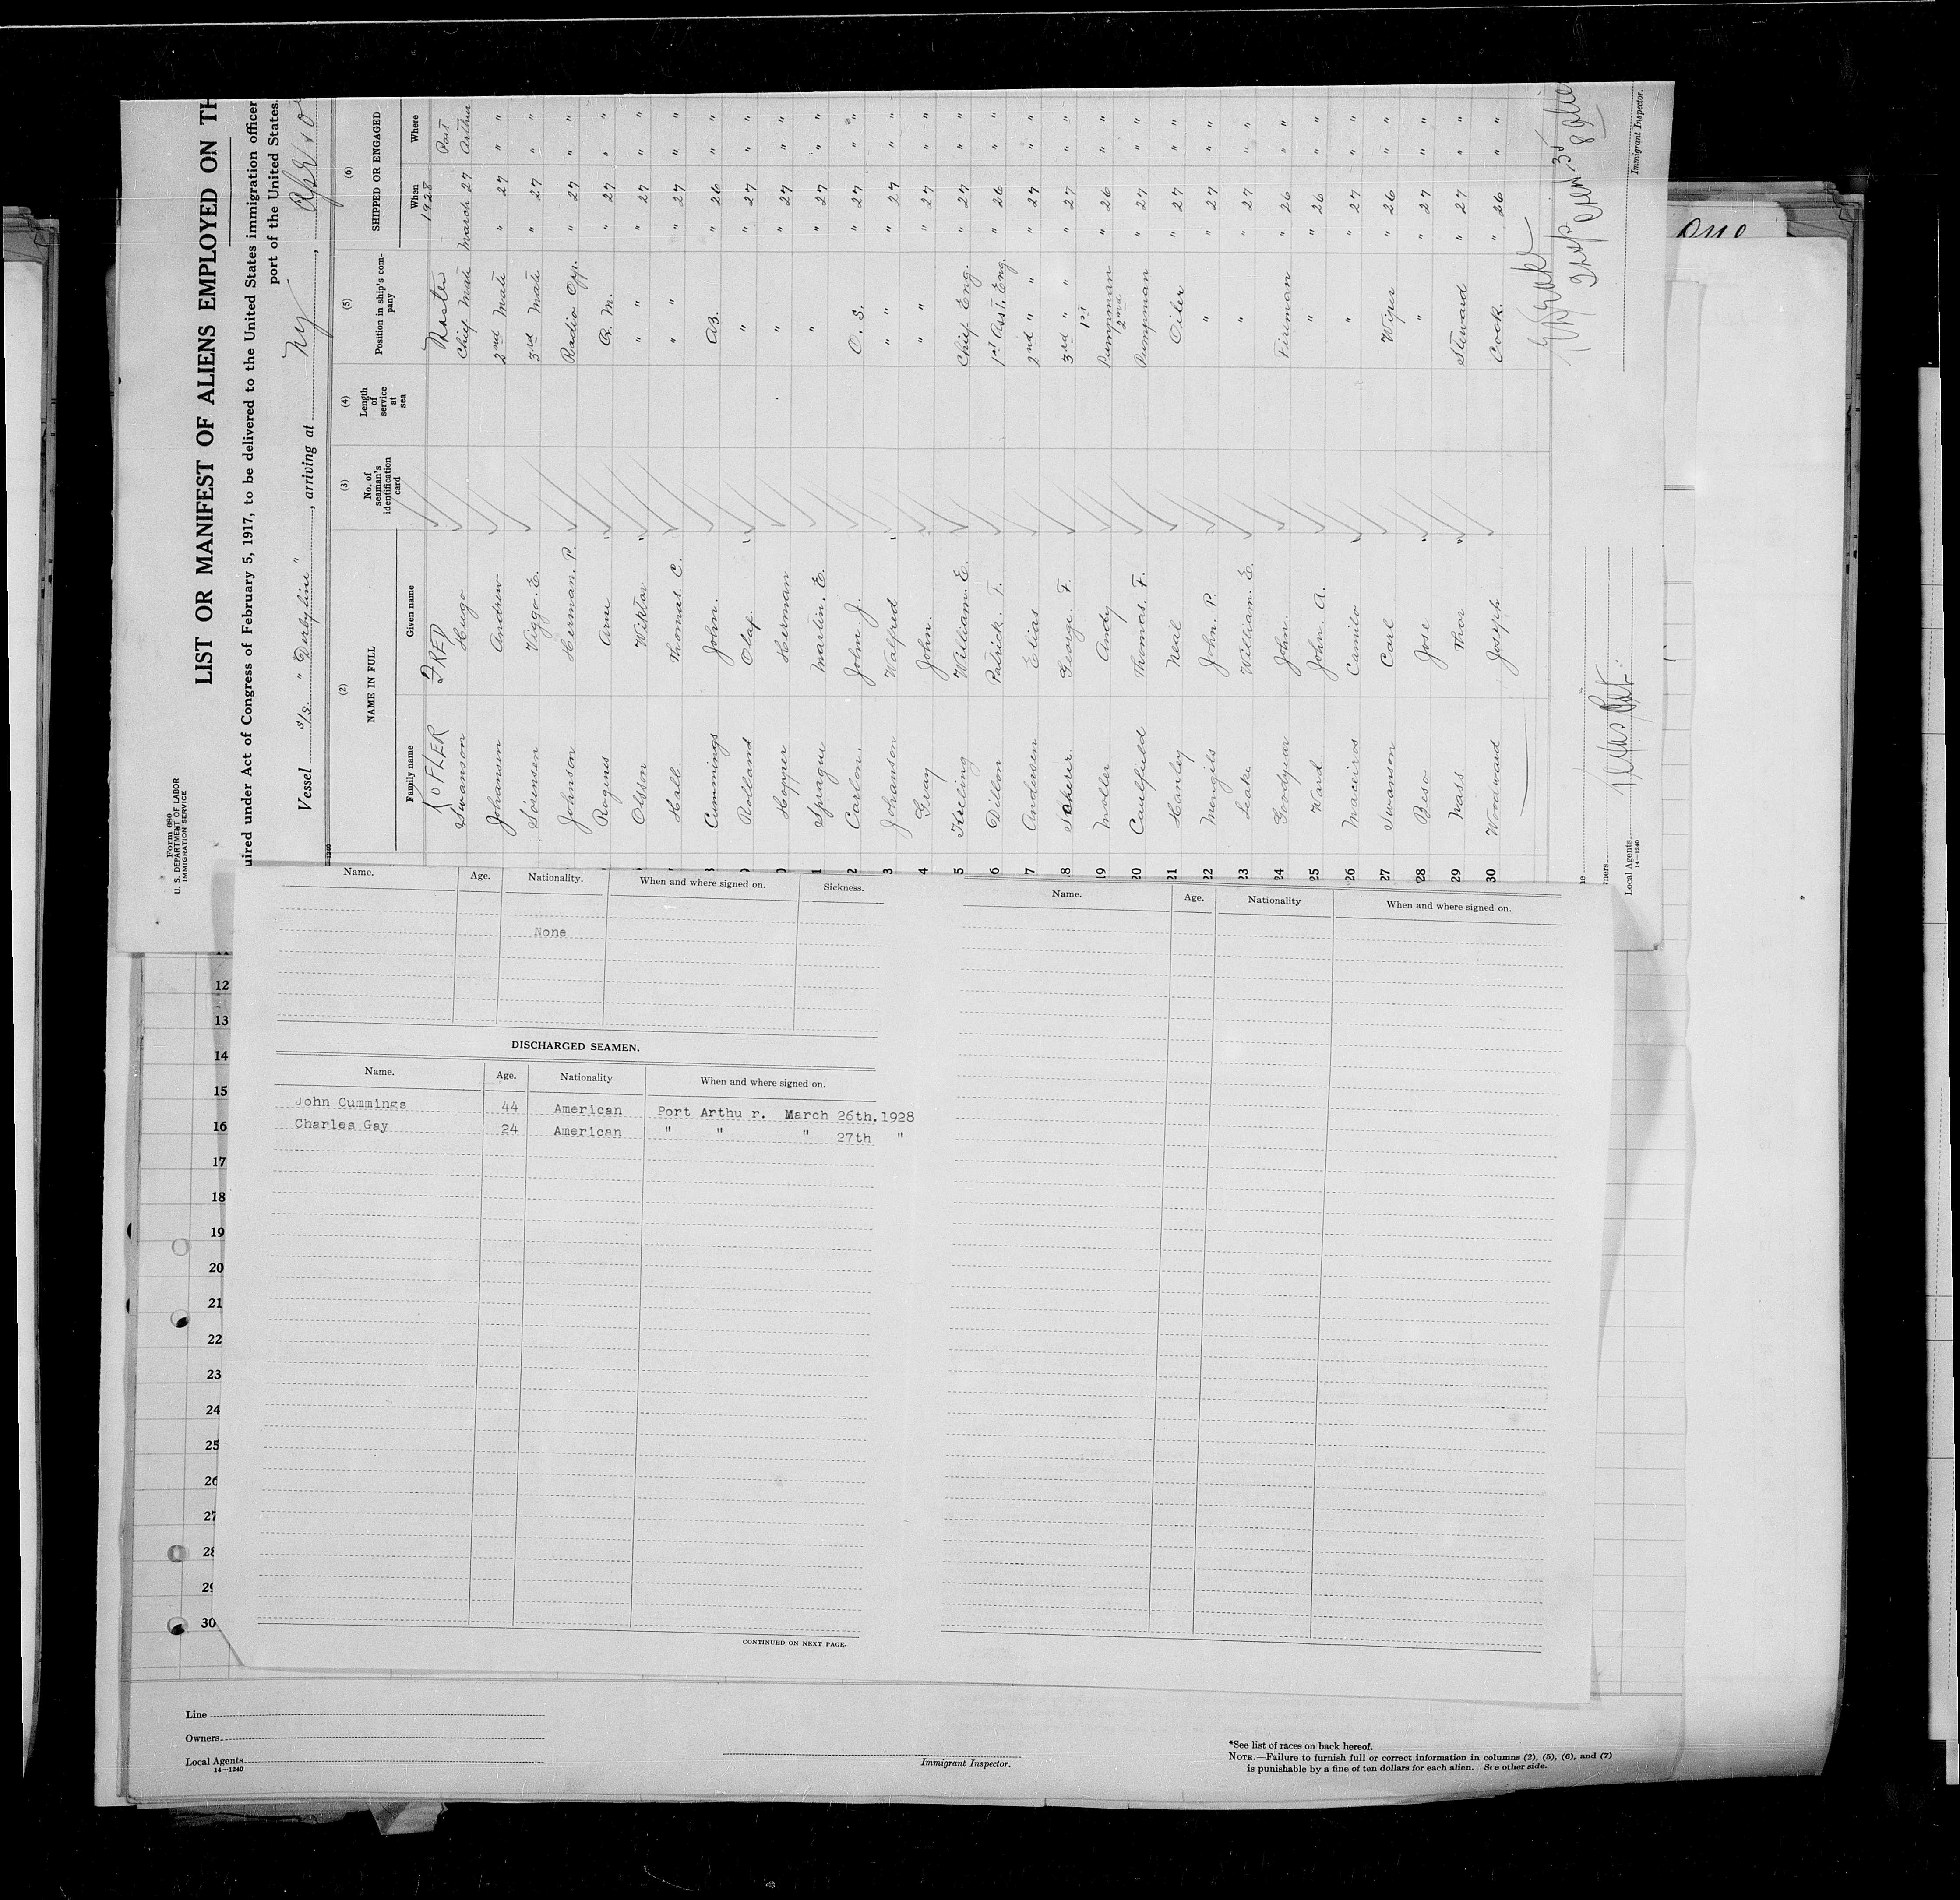 Form 680
U. S. DEPARTMENT OF LABOR
IMMIGRATION SERVICE
LIST OR MANIFEST OF ALIENS EMPLOYED ON TH
uired under Act of Congress of February 5, 1917, to be delivered to the United States immigration officer
port of the United States.
Vessel S/S. "Derbyline", arriving at NY,
(2) (3) (4) (5) (6)
NAME IN FULL No. of seaman's identification card Length of service at sea Position in ship's company SHIPPED OR ENGAGED
Family name Given name When Where
1928
FRED Master Port
Swanson Hugo Chief Mate March 27 Arthur
Johansen Andrew 2nd Mate " 27 " "
Sorensen Viggo. E. 3rd Mate " 27 " "
Johnson Herman. P. Radio Opp. " 27 " "
Rogines Arne Q. M. " 27 " "
Olsson Wiktor " " " 27 " "
Hall. Thomas. C. " " " 27 " "
Cummings John. AB. " 26 " "
Rolland Olaf. " " 27 " "
Hopper Herman " " 27 " "
1 Sprague Martin. E. " " 27 " "
2 Carlon. John J. O. S. " 27 " "
3 Johanson Walfred " " " 27 " "
4 Gray John. " " " 27 " "
5 Kreling William. E. Chief Eng. " 27 " "
6 Dillon Patrick. F. 1st Asst. Eng. " 26 " "
7 Andersen Elias 2nd " " " 27 " "
8 George. F. 3rd " " " 27 " "
19 Moller Andy 1st Pumpman " 26 " "
20 Caulfield Thomas. F. 2nd Pumpman " 27 " "
21 Hanley Neal Oiler " 27 " "
22 Mengils John. P. " " 27 " "
23 Leake William. E. " " 27 " "
24 Goodyear John. Fireman " 26 " "
25 Ward. John A. " " 26 " "
26 Maceiros Camilo " " 27 " "
27 Swanson Carl Wiper " 26 " "
28 Beso Jose " " 27 " "
29 Wass Thor Steward " 27 " "
30 Woodward Joseph Cook. " 26 " "
Local Agents
14—1240
Immigrant Inspector.
Name. Age. Nationality. When and where signed on. Sickness.
None
DISCHARGED SEAMEN.
Name. Age. Nationality When and where signed on.
John Cummings 44 American Port Arthu r. March 26th.1928
Charles Gay 24 American " " " 27th "
CONTINUED ON NEXT PAGE.
Name. Age. Nationality When and where signed on.
12
13
14
15
16
17
18
19
20
21
22
23
24
25
26
27
28
29
30
Line
Owners
Local Agents
14—1240
Immigrant Inspector.
*See list of races on back hereof.
NOTE.—Failure to furnish full or correct information in columns (2), (5), (6), and (7)
is punishable by a fine of ten dollars for each alien. See other side.